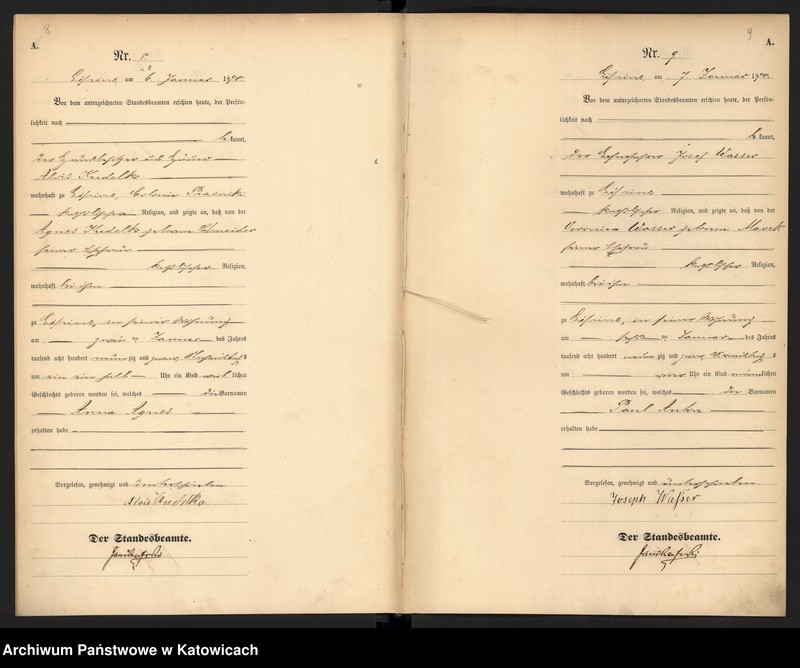 8
A.
Nr. 8.
am 6. Januar 1890.
Vor dem unterzeichneten Standesbeamten erschien heute, der Persön-
lichkeit nach
be kannt,
der und
Alois Kudelko
wohnhaft zu Colonie
katholischer Religion, und zeigte an, daß von der
Agnes Kudelko geborene Schneider
seiner Ehefrau
katholischer Religion,
wohnhaft bei ihm
zu in seiner Wohnung
am zwei ten Januar des Jahres
tausend acht hundert neun zig und zwar Nachmittags
um ein ein halb Uhr ein Kind weib lichen
Geschlechts geboren worden sei, welches die Vornamen
Anna Agnes
erhalten habe
Vorgelesen, genehmigt und unterschrieben
Alois Kudelka
Der Standesbeamte.
9
A.
Nr. 9
am 7. Januar 1890.
Vor dem unterzeichneten Standesbeamten erschien heute, der Persön-
lichkeit nach
be kannt,
der Josef Wasser
wohnhaft zu
katholischer Religion, und zeigte an, daß von der
Veronica Wasser geborene Marek
seiner Ehefrau
katholischer Religion,
wohnhaft bei ihm
zu in seiner Wohnung
am Januar des Jahres
tausend acht hundert neun zig und zwar Vormittags
um vier Uhr ein Kind männlichen
Geschlechts geboren worden sei, welches den Vornamen
Paul Anton
erhalten habe
Vorgelesen, genehmigt und unterschrieben.
Joseph Waßer
Der Standesbeamte.
Archiwum Państwowe w Katowicach